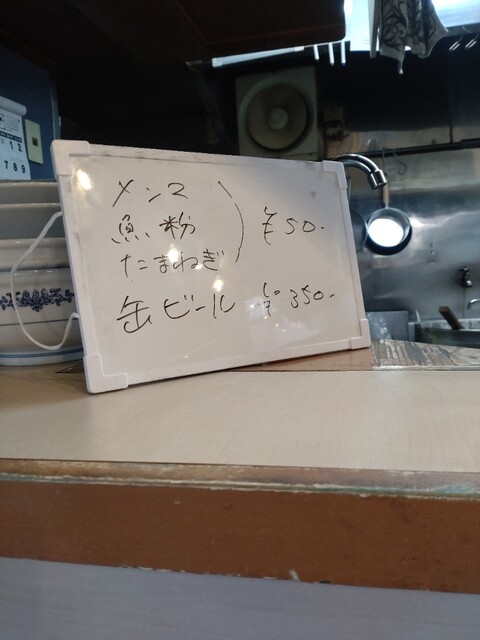 メンマ
魚粉
たまねぎ
) ¥50.
缶ビール ¥350.
1 2
7 8 9